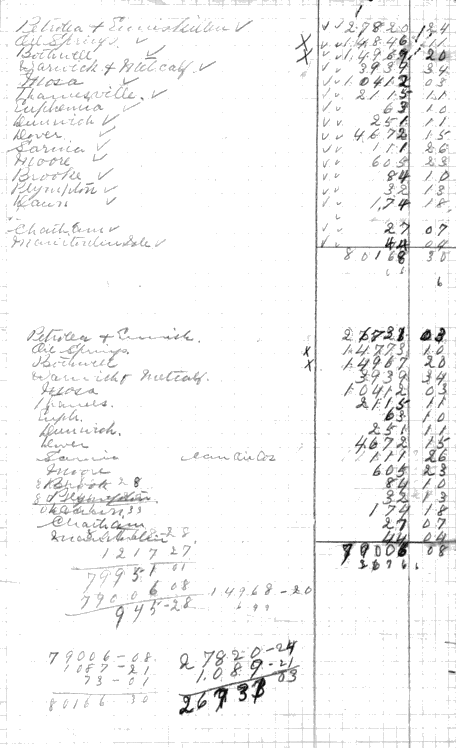 Petrolea & Enniskillen ✓ ✓ ✓ 27820 24
Oil Springs ✓ x ✓ ✓ 14846 11
Bothwell ✓ x ✓ ✓ 14969 20
Warwick & Metcalf ✓ ✓ ✓ 3939 34
Mosa ✓ ✓ ✓ 10412 03
Thamesville ✓ ✓ ✓ 2115 11
Euphemia ✓ ✓ ✓ 63 10
Dunwich ✓ ✓ ✓ 251 11
Dover ✓ ✓ ✓ 4672 15
Sarnia ✓ ✓ ✓ 111 26
Moore ✓ ✓ ✓ 605 23
Brooke ✓ ✓ ✓ 84 10
Plympton ✓ ✓ ✓ 32 13
Dawn ✓ ✓ ✓ 174 18
Chatham ✓ ✓ ✓ 27 07
Manitoulin Isle ✓ ✓ ✓ 44 04
80168 30
6
Petrolea & Ennisk. 26731 03
Oil Springs x 14773 10
Bothwell x 14967 20
Warwich & Metcalf. 3939 34
Mosa 10412 03
Thames. 2115 11
Euph. 63 10
Dunwich. 251 11
Dover 4672 15
Sarnia 111 26
Moore 605 23
Brook 84 10
Plympton. 32 13
174 18
Chatham 27 07
44 04
79006 08
1217 27
79951 01
79006 08 14968-20
945-28
79006-08 27820-24
1087-21 1089-21
73-01 03
80166 30 26731